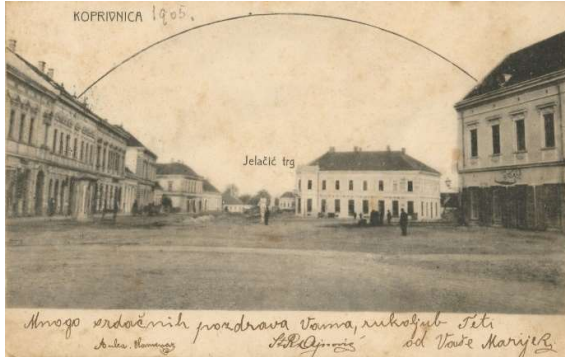 KOPRIVNICA 1905.
Jelačić trg
Mnogo srdačnih pozdrava Vama, rukoljub Teti
od Vaše Marije